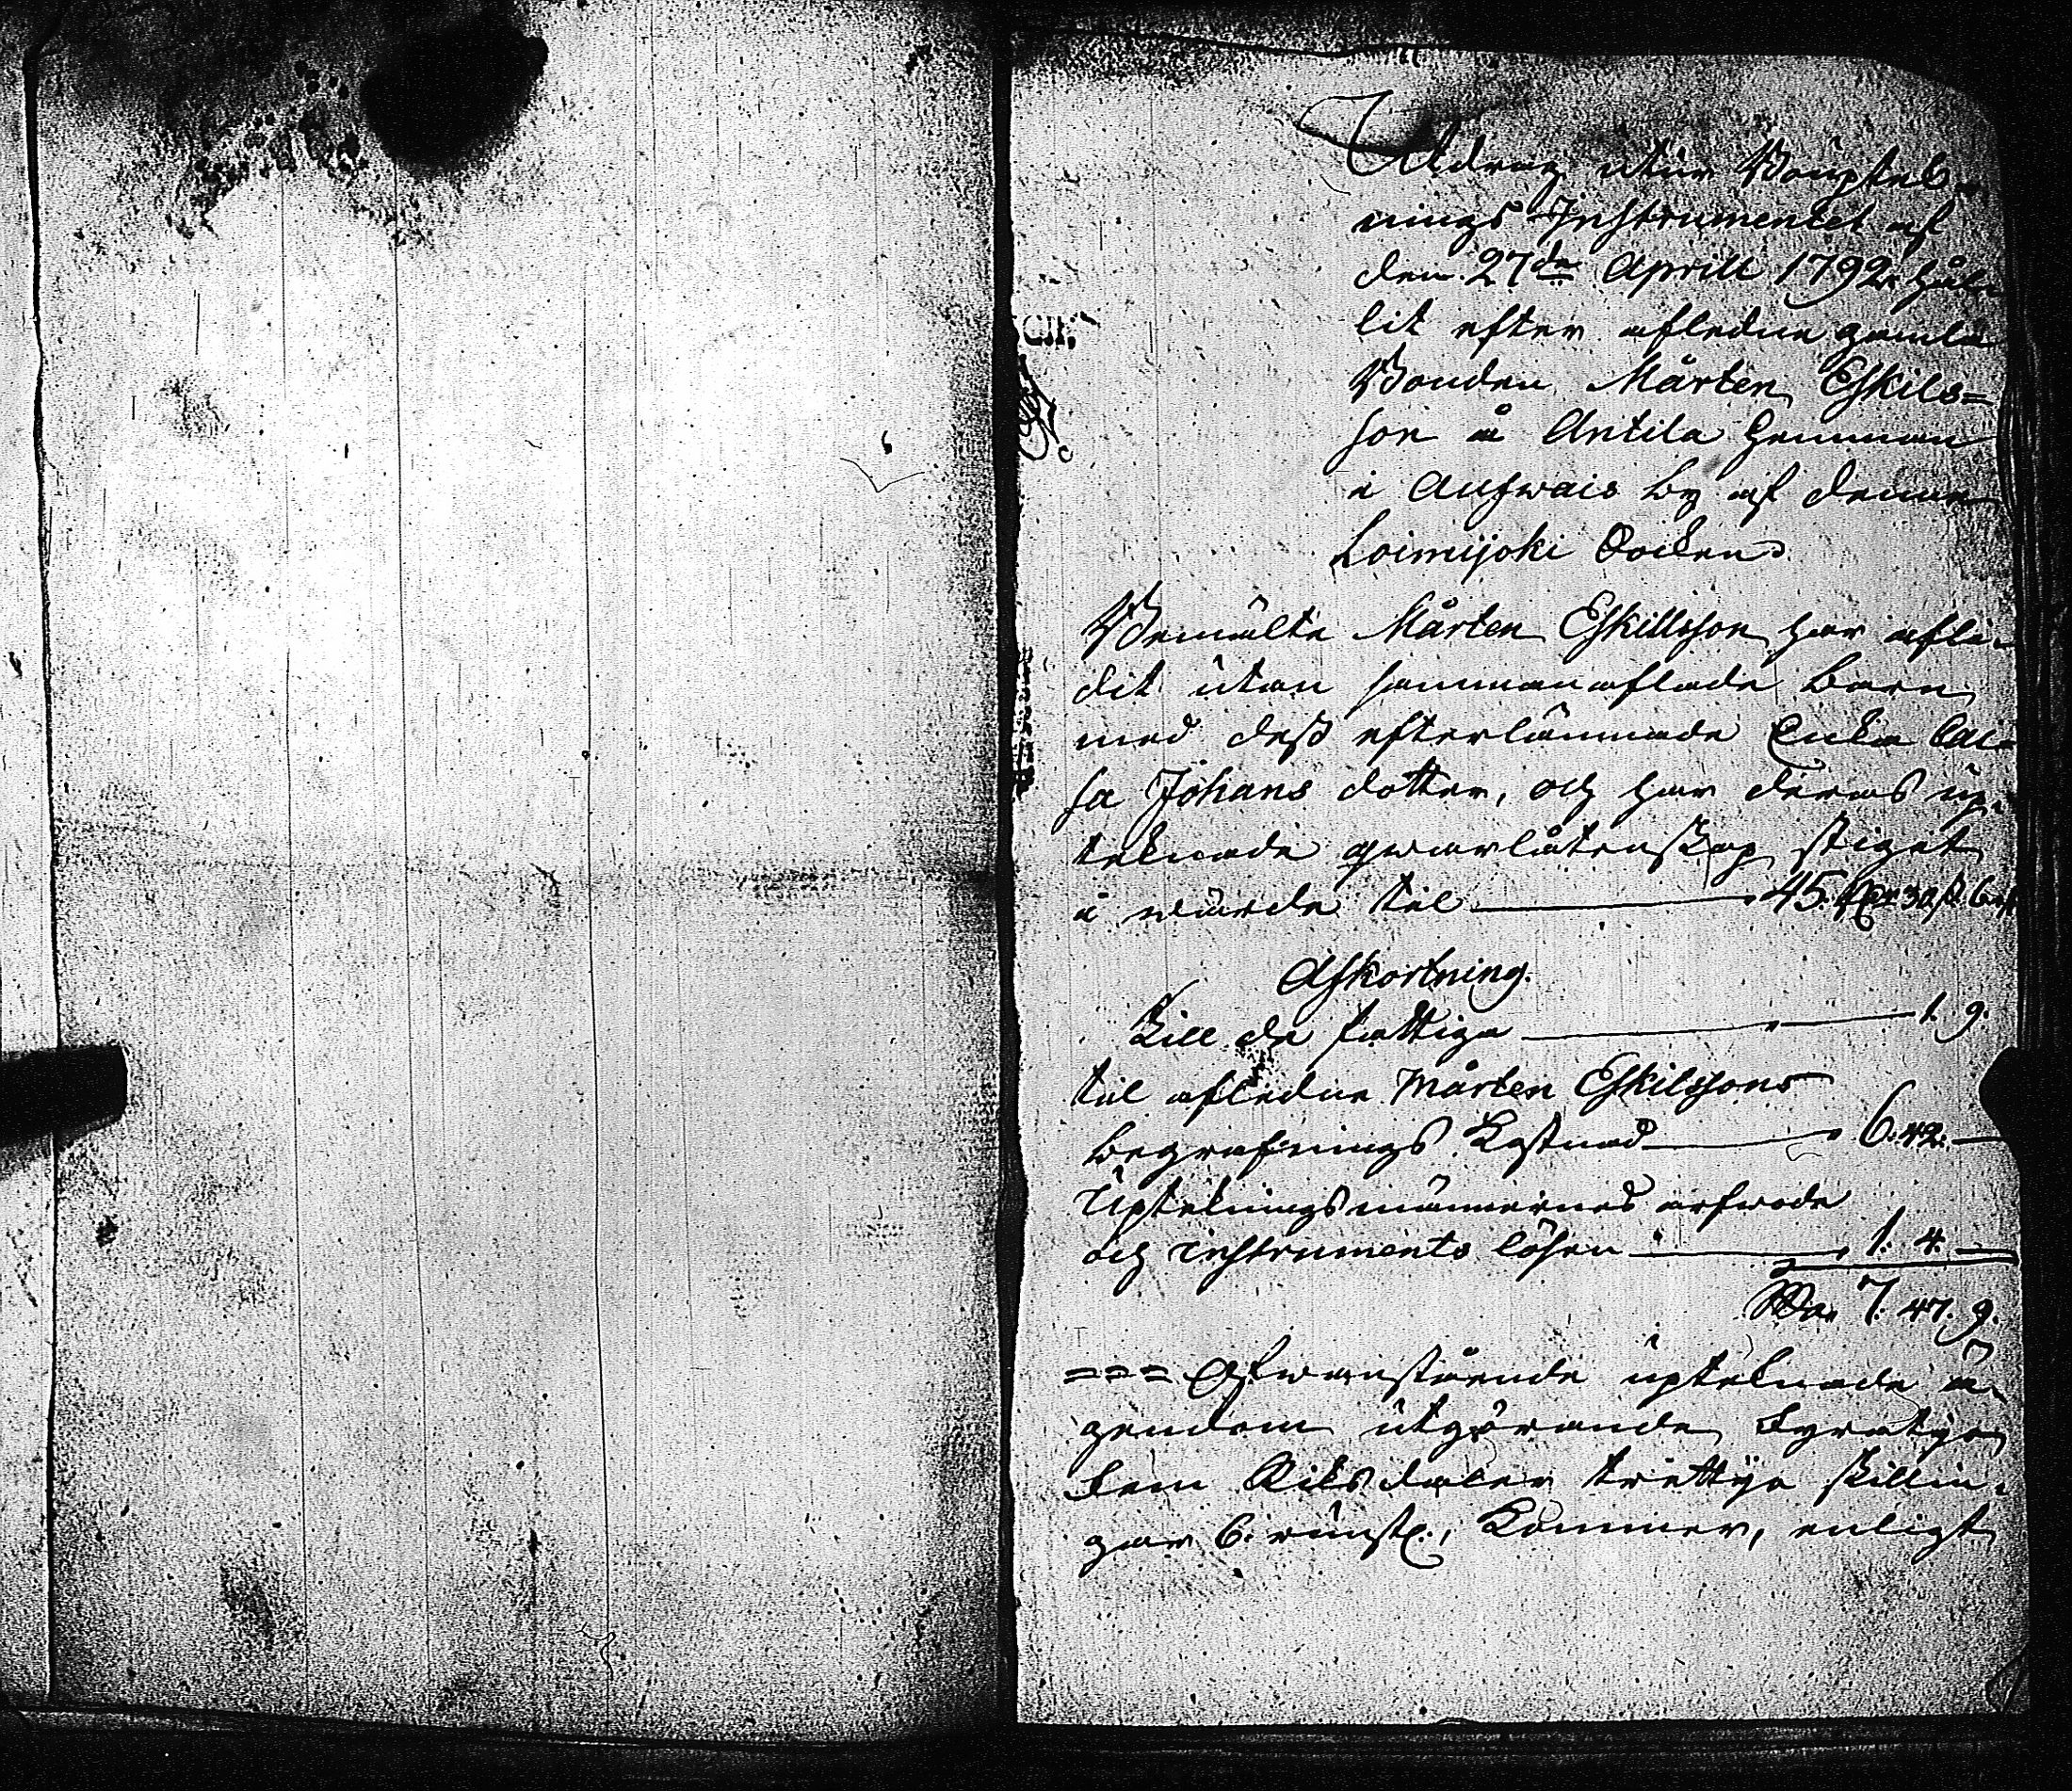 Utdrag utur Bouptek-
nings Instrumentet af
den 27de Aprill 1792 hål-
lit efter afledne gamla
Bonden Mårten Eskils=
son å Antila Hemman
i Aufwais by af denne
Loimijoki Socken
Bemälte Mårten Eskillsson har afli-
dit utan sammanaflade Barn
med dess efterlämnade Enka Cai=
sa Johans dotter, och har deras up-
teknade qwarlåtenskap stigat
i wärde til 45. Rd 30 ß 6 rst
Afkortning.
Till de fattiga 1. 9.
til afledne Mårten Eskilssons
begrafnings Kostnad 6. 42. —
Upteknings männernes arfwode
och instruments lösen 1. 4. —
7. 47. 9.
=== Ofwanstående upteknade ä-
gendom utgörande Fyratijo
fem Riksdaler trettijo skillin-
gar 6. runst., Kommer, enligt